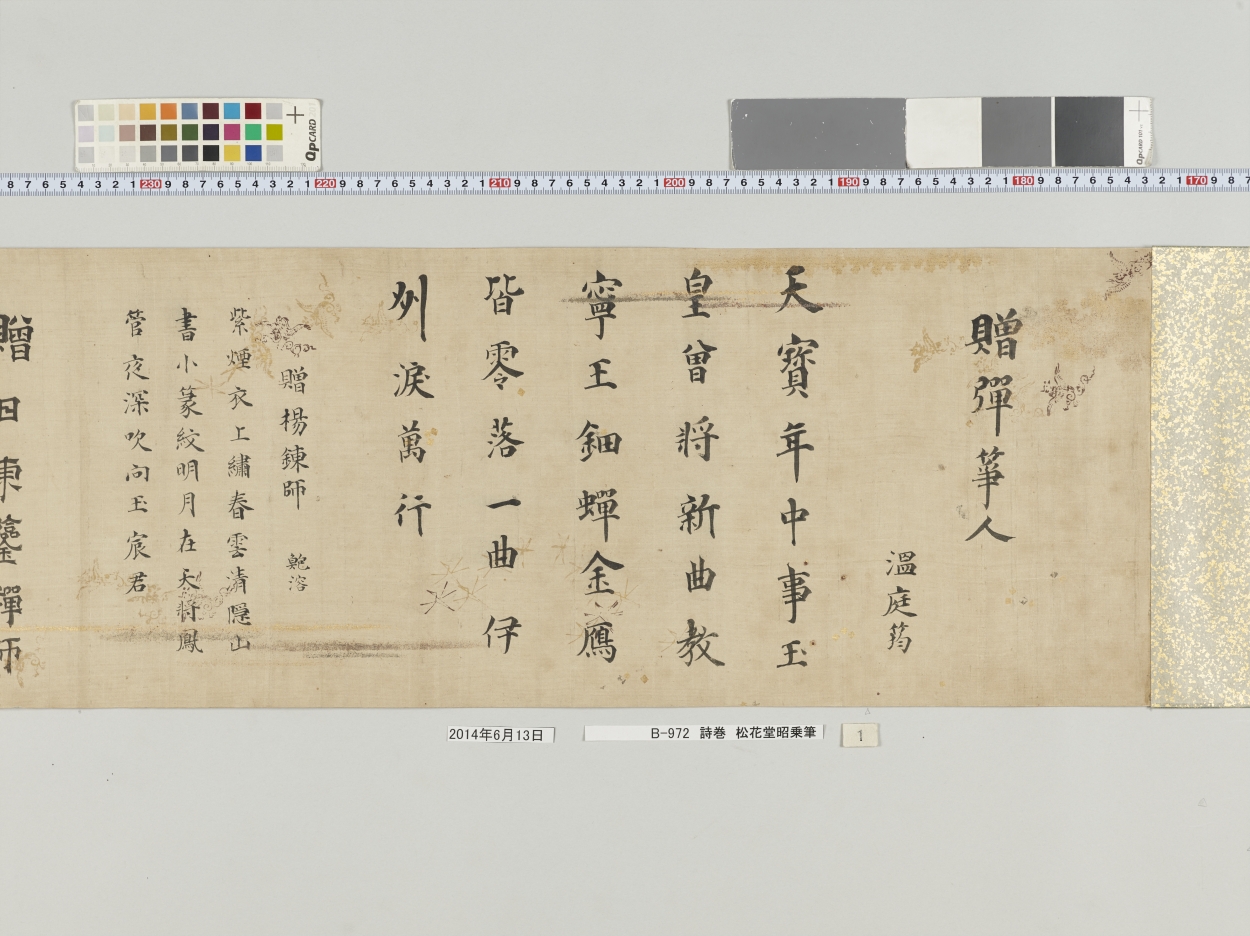 贈彈箏人
温庭筠
天寶年中事玉
皇曾將新曲教
寧王鈿蟬金鴈
皆零落一曲伊
州淚萬行
贈楊鍊師 鮑溶
紫煙衣上繡春雲清隱山
書小篆紋明月在天將鳳
管夜深吹向玉宸君
贈日東鑒禪師
QPCARD
8 7 6 5 4 3 2 1 230 9 8 7 6 5 4 3 2 1 220 9 8 7 6 5 4 3 2 1 210 9 8 7 6 5 4 3 2 1 200 9 8 7 6 5 4 3 2 1 190 9 8 7 6 5 4 3 2 1 180 9 8 7 6 5 4 3 2 1 170 9 8 7
2014年6月13日
B-972 詩巻 松花堂昭乗筆
1